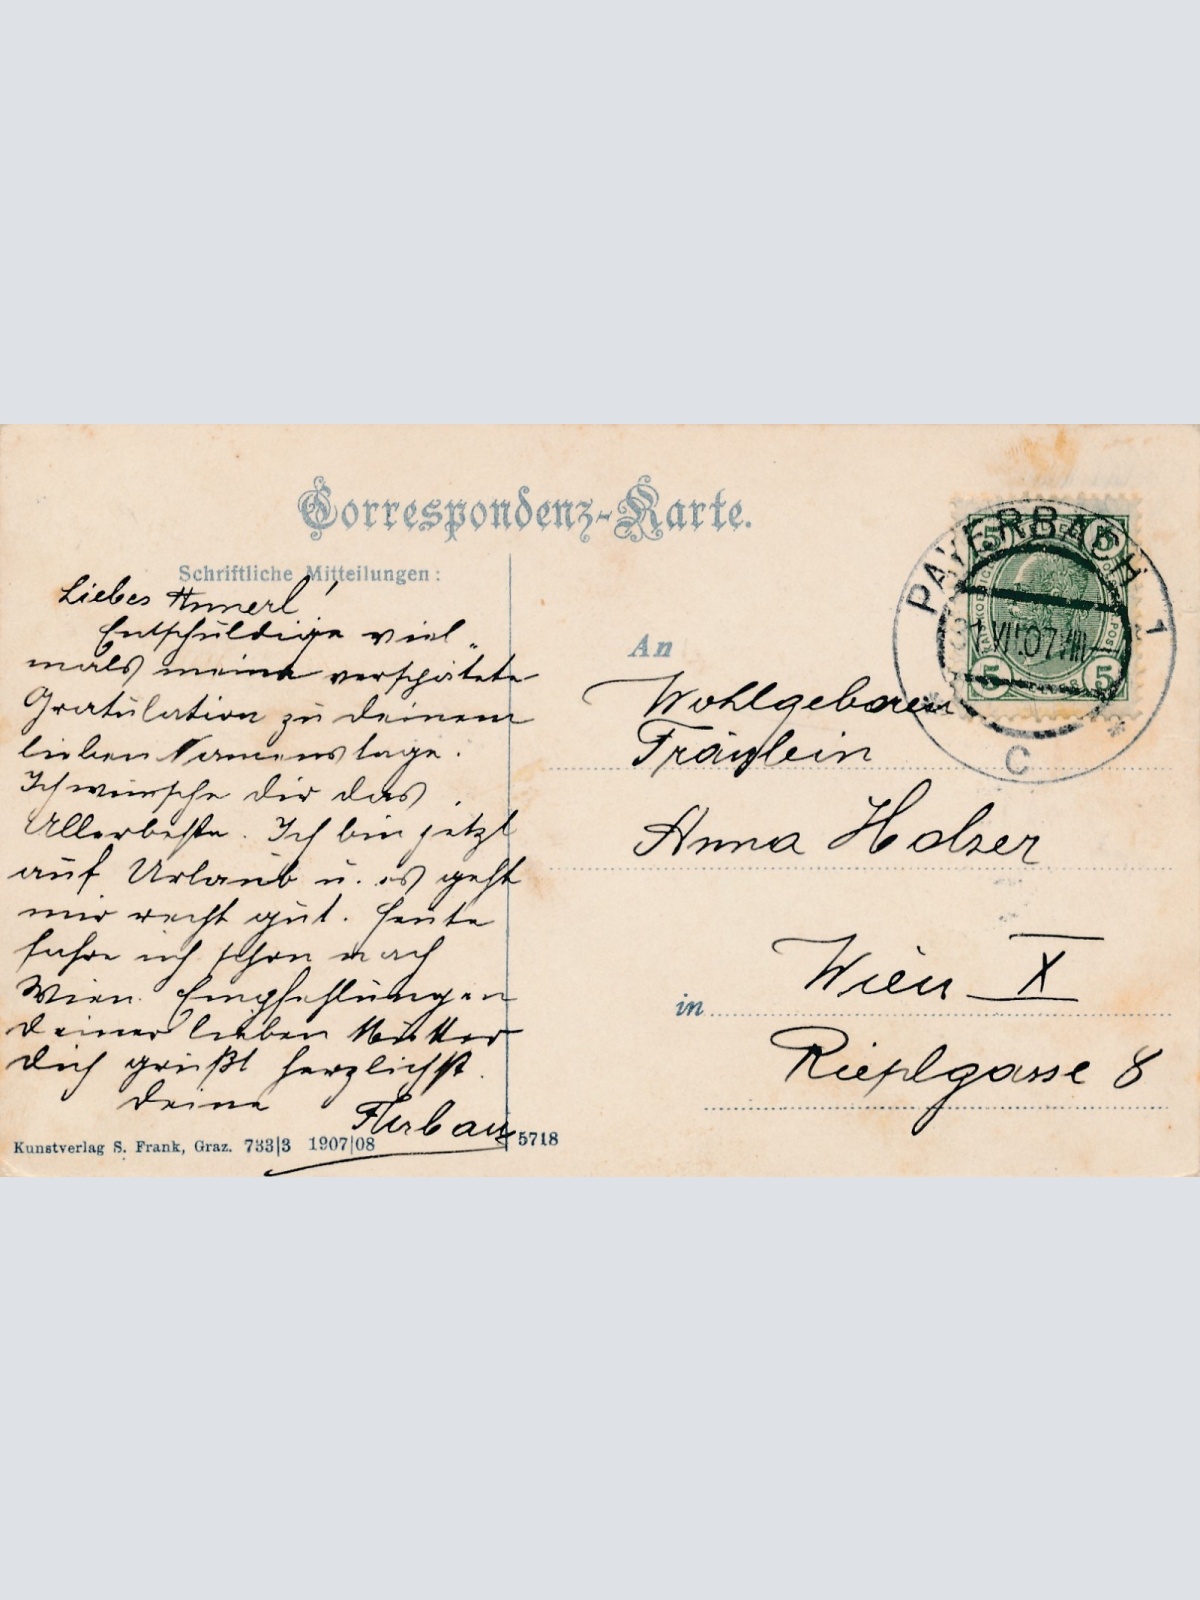 Correspondenz-Karte.
Schriftliche Mitteilungen:
Liebes Annerl!
Entschuldige viel„
mals meine verspätete
Gratulation zu Deinem
lieben Namenstage.
Ich wünsche Dir das
Allerbeste. Ich bin jetzt
auf Urlaub u. es geht
mir recht gut. Heute
fahre ich schon nach
Wien. Empfehlungen
Deiner lieben Mutter
Dich grüßt herzlichst.
Deine
Kunstverlag S. Frank, Graz. 733|3 1907|08
5718
PAYERBACH 1
7.VII.07.VIII
C
5 5
5 5
An
Wohlgeboren
Fräulein
Anna Holzer
in Wien X
Rieplgasse 8